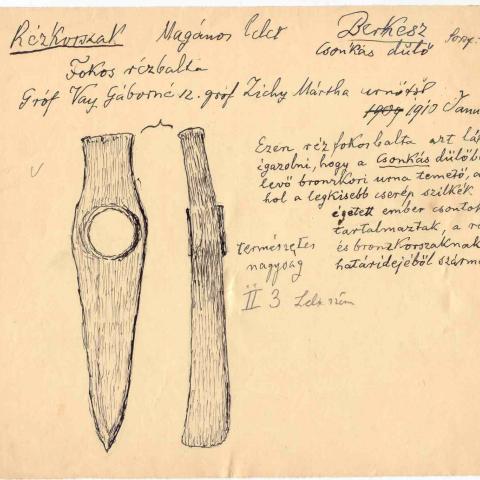 Rézkorszak Magános lelet Berkesz
Csonkás dülő
Fokos rézbalta
Gróf Vay Gáborné sz. gróf Zichy Mártha urnőtől
1909 1910 Janu
Ezen réz fokosbalta azt lát
igazolni, hogy a Csonkás dülőb
levő bronzkori urna temető, a
hol a legkisebb cserép szilkék
égetett ember csontok
tartalmaztak, a r
és bronzkorszaknak
határidejéből szárm
természetes
nagyság
II 3 Lelt. szám